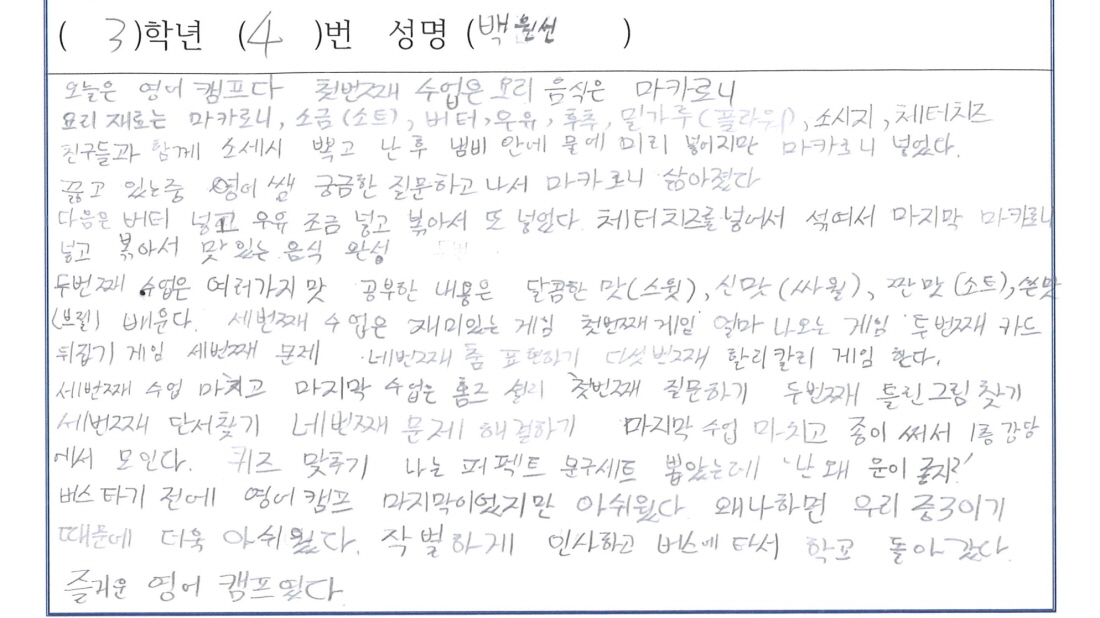 ( 3 )학년 ( 4 )번 성명 (백원선 )
오늘은 영어 캠프다 첫번째 수업은 요리 음식은 마카로니
요리 재료는 마카로니, 소금(소트), 버터, 우유, 후추, 밀가루(플라워), 소시지, 체터치즈
친구들과 함께 소세시 뽁고 난 후 냄비 안에 물에 미리 넣어지만 마카로니 넣었다.
끓고 있는중 영어 쌤 궁금한 질문하고 나서 마카로니 삶아졌다
다음은 버터 넣고 우유 조금 넣고 볶아서 또 넣었다. 체터치즈를 넣어서 섞여서 마지막 마카로니
넣고 볶아서 맛 있는 음식 완성
두번째 수업은 여러가지 맛 공부한 내용은 달콤한 맛(스윗), 신맛(싸월), 짠맛(소트), 쓴맛
(브럴) 배운다. 세번째 수업은 재미있는 게임 첫번째 게임 얼마 나오는 게임 두번째 카드
뒤집기 게임 세번째 문제 네번째 춤 표현하기 다섯번째 할리칼리 게임 한다.
세번째 수업 마치고 마지막 수업는 홈즈 첫번째 질문하기 두번째 틀린그림 찾기
세번째 단서찾기 네번째 문제 해결하기 마지막 수업 마치고 종이 써서 1층 강당
에서 모인다. 퀴즈 맞추기 나는 퍼펙트 문구세트 뽑았는데 '난 왜 운이 좋지?'
버스 타기 전에 영어캠프 마지막이었지만 아쉬웠다 왜나하면 우리 중3이기
때문에 더욱 아쉬웠다. 작별하게 인사하고 버스에 타서 학교 돌아갔다.
즐거운 영어 캠프였다